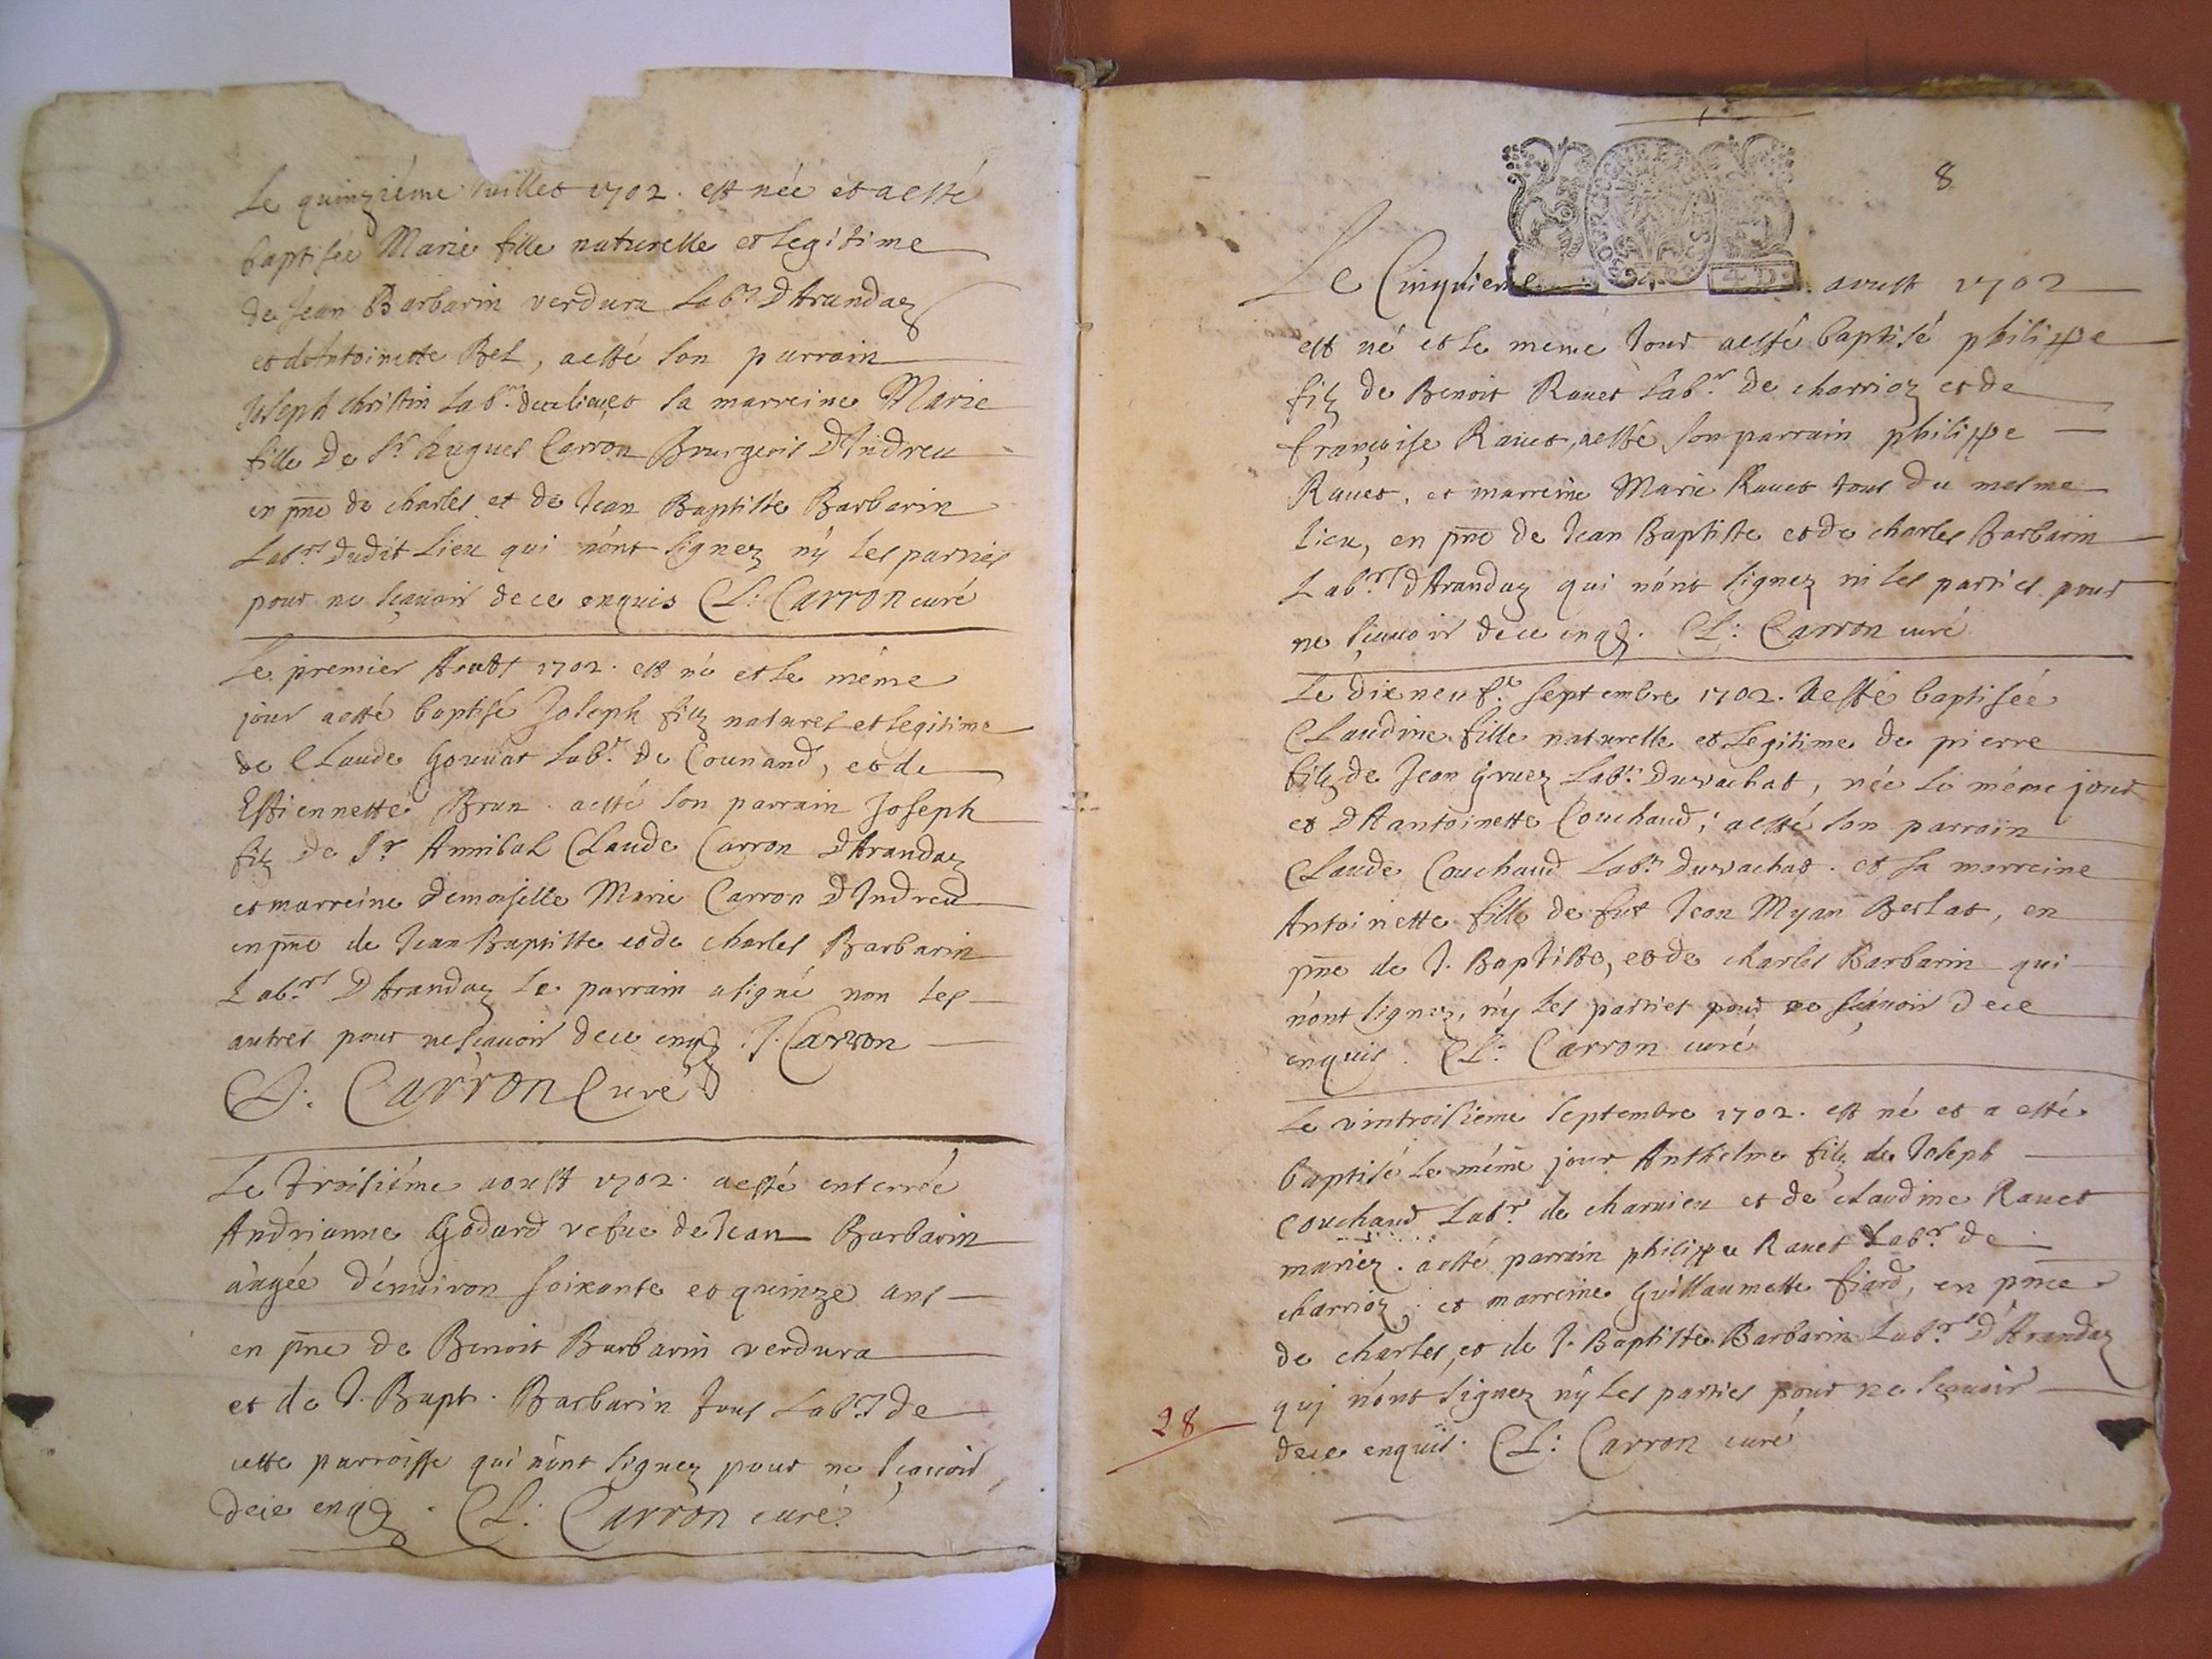 Le quinziéme Juillet 1702. est née et a esté
baptisée Marie fille naturelle et legitime
de Jean Barbarin verdura Labr. D'Arandaz
et d'Antoinette Bel, a esté son parrain
Joseph Christin Labr. dud. lieu, et sa marreine Marie
fille de Sr. hugues Carron Bourgeois D'Indreu
en pnce de charles et de Jean Baptiste Barbarin
Labrs. dudit Lieu qui n'ont signez n'y les parties
pour ne sçauoir de ce enquis CL: Carron curé
Le premier Aoust 1702. est né et le méme
jour a esté baptisé Joseph filz naturel et legitime
de CLaude Gouuat Labr. de Counand, et de
Estiennette Brun. a esté son parrain Joseph
filz de Sr. Annibal CLaude Carron D'Arandaz
et marreine demoiselle Marie Carron D'Indreu
en pnce de Jean Baptiste et de charles Barbarin
Labrs. D'Arandaz le parrain a signé non les
autres pour ne sçauoir de ce enq. J. Carron
CL: Carron Curé
Le troisiéme aoust 1702. a esté enterrée
Andrianne Godard vefue de Jean Barbarin
aagée d'enuiron soixante et quinze ans
en pnce de Benoit Barbarin verdura
et de J. Bapt. Barbarin tous Labrs de
cette parroisse qui n'ont signez pour ne sçauoir
de ce enq. CL: Carron curé
8
Le Cinquiéme aoust 1702
est né et le meme Jour a esté baptisé philippe
filz de Benoit Rauet Labr. de charrioz et de
françoise Rauet, a esté son parrain philippe
Rauet, et marreine Marie Rauet tous du mesme
lieu, en pnce de Jean Baptiste et de charles Barbarin
Labrs. D'Arandaz qui n'ont signez ni les parties pour
ne sçauoir de ce enq. CL: Carron curé
Le dix neufe. septembre 1702. A esté baptisée
CLaudine fille naturelle et Legitime de pierre
filz de Jean gruez Labr. du vachat, née le méme jour
et D'Aantoinette Couchaud; a esté son parrain
CLaude Couchaud Labr. du vachat. et sa marreine
Antoinette fille de fut Jean Myan Berlat, en
pnce de J. Baptiste, et de charles Barbarin qui
n'ont signez, n'y les parties pour ne sçauoir de ce
enquis. CL: Carron curé
Le vintroisiéme septembre 1702. est né et a esté
baptisé le méme jour Anthelme filz de Joseph
Couchaud Labr. de charuieu et de claudine Rauet
mariez. a esté parrain philippe Rauet Labr. de
charrioz; et marreine Guillaumette fiard, en pnce
de charles, et de J. Baptiste Barbarin Labrs. D'Arandaz
qui n'ont signez n'y les parties pour ne sçauoir
de ce enquis. CL: Carron curé
28